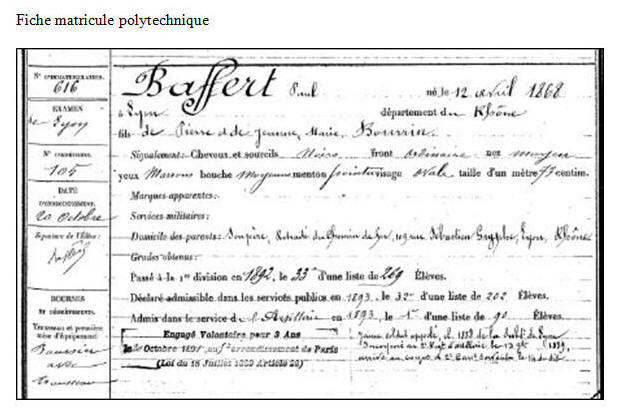 Fiche matricule polytechnique
N° D'IMMATRICULATION.
616
EXAMENS
de Lyon
N° D'ADMISSION.
105
DATE
20 Octobre
Signature de l'Élève:
BOURSES
Trousseau et première mise d'équipement
Boursier
avec
trousseau
Baffert Paul né le 12 avril 1868
à Lyon département du Rhône
fils de Pierre et de Jeanne, Marie, Bouvrin.
Signalement: Cheveux et sourcils Noirs front ordinaire nez moyen
yeux Marrons bouche moyenne menton pointu visage ovale taille d'un mètre 73 centim.
Marques apparentes:
Services militaires:
Domicile des parents: Son père, Retraité du Chemin de fer, 109 rue Sébastien Gryphe, Lyon, Rhône
Grades obtenus:
Passé à la 1re division en 1892, le 33e d'une liste de 269 Élèves.
Déclaré admissible dans les services publics en 1893, le 32e d'une liste de 202 Élèves.
Admis dans le service de l'Artillerie en 1893, le 1er d'une liste de 90 Élèves.
Engagé Volontaire pour 3 Ans
le Octobre 1891, au arrondissement de Paris
(Loi du 15 Juillet 1889 Article 28)
Jeune soldat appelé, cl. 1888 de la subdi de Lyon
Incorporé au 2e Régt d'artillerie le 1889,
arrivé au corps le dit